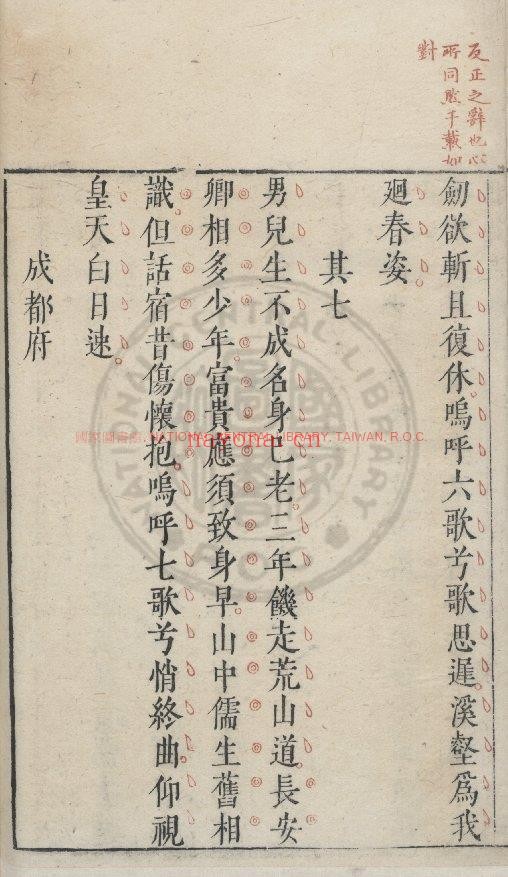 反正之辭也心
所同然千載如
對
劒欲斬且復休嗚呼六歌兮歌思遲溪壑爲我
廻春姿
其七
男兒生不成名身已老三年饑走荒山道長安
卿相多少年富貴應須致身早山中儒生舊相
識但話宿昔傷懷抱嗚呼七歌兮悄終曲仰視
皇天白日速
成都府
國家圖書館 NATIONAL CENTRAL LIBRARY, TAIWAN, R.O.C.
NATIONAL CENTRAL LIBRARY